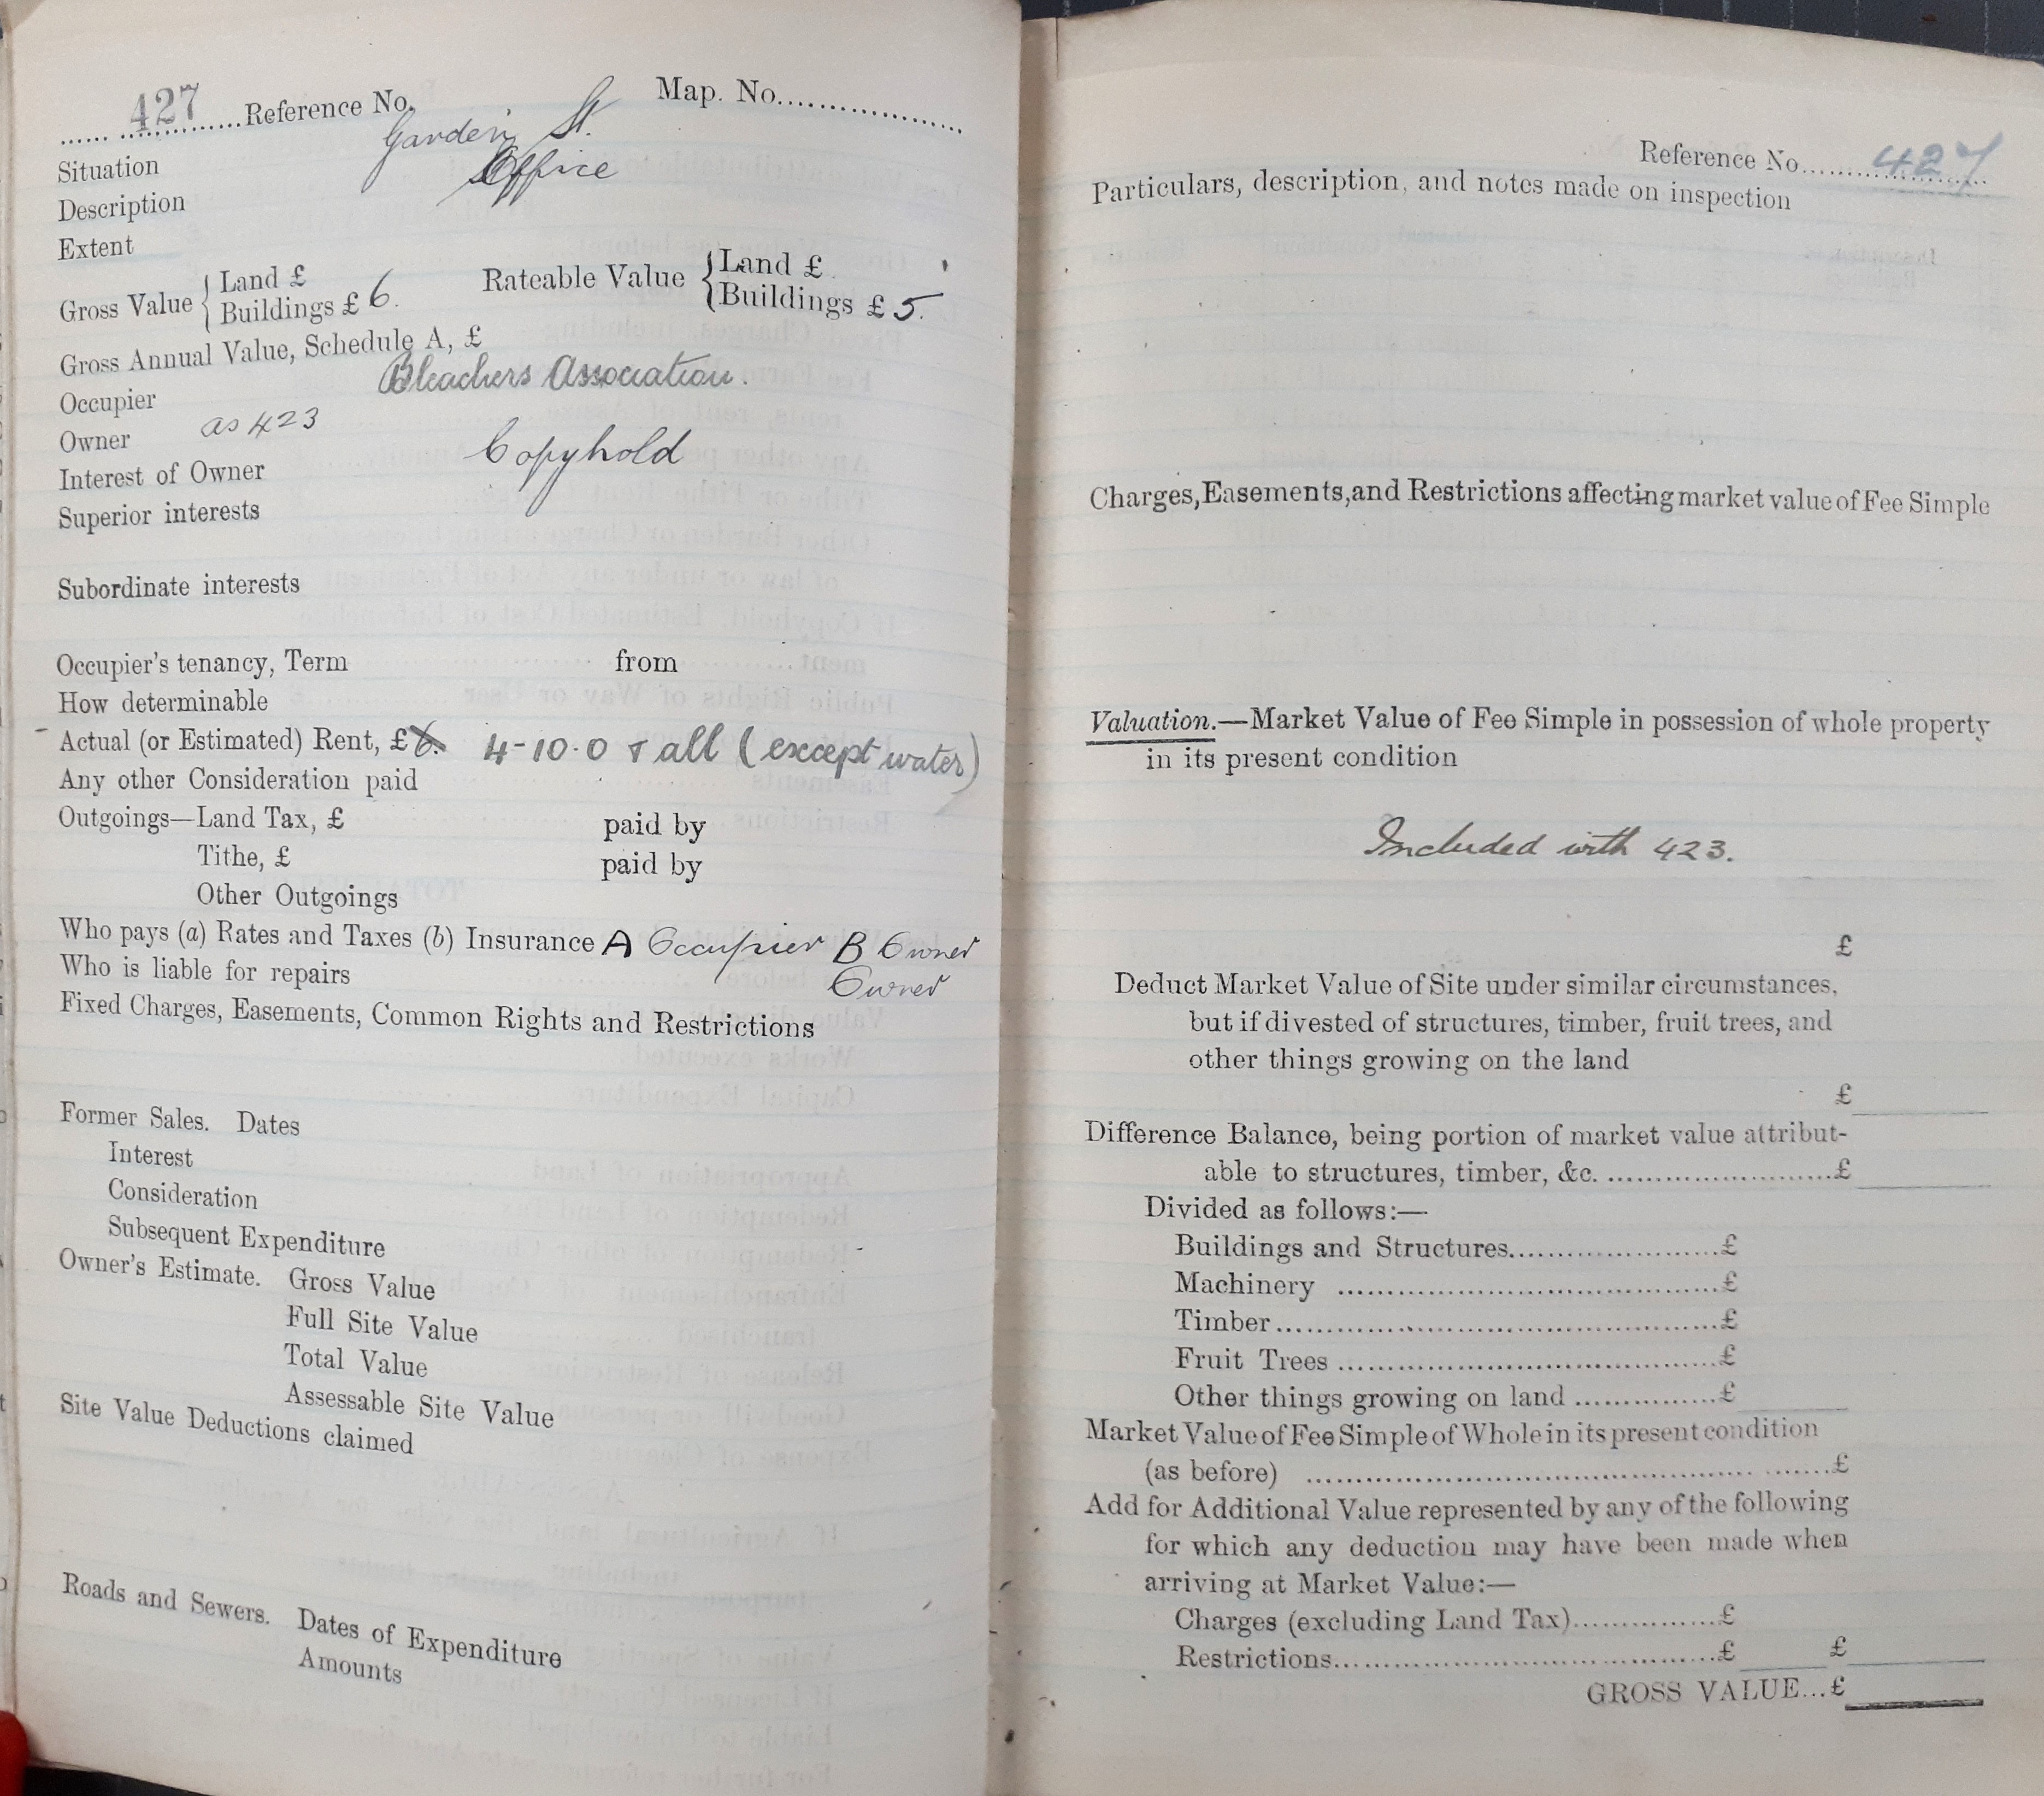 427 Reference No. Map. No.
Situation Garden St.
Description Office
Extent
Gross Value { Land £ Rateable Value { Land £
Buildings £ 6. Buildings £ 5.
Gross Annual Value, Schedule A, £
Occupier Bleachers Association.
Owner as 423
Interest of Owner Copyhold
Superior interests
Subordinate interests
Occupier's tenancy, Term from
How determinable
Actual (or Estimated) Rent, £6. 4-10-0 & all (except water)
Any other Consideration paid
Outgoings—Land Tax, £ paid by
Tithe, £ paid by
Other Outgoings
Who pays (a) Rates and Taxes (b) Insurance A Occupier B Owner
Who is liable for repairs Owner
Fixed Charges, Easements, Common Rights and Restrictions
Former Sales. Dates
Interest
Consideration
Subsequent Expenditure
Owner's Estimate. Gross Value
Full Site Value
Total Value
Assessable Site Value
Site Value Deductions claimed
Roads and Sewers. Dates of Expenditure
Amounts
Reference No. 427
Particulars, description, and notes made on inspection
Charges, Easements, and Restrictions affecting market value of Fee Simple
Valuation.—Market Value of Fee Simple in possession of whole property
in its present condition
Included with 423.
£
Deduct Market Value of Site under similar circumstances,
but if divested of structures, timber, fruit trees, and
other things growing on the land
£
Difference Balance, being portion of market value attribut-
able to structures, timber, &c. £
Divided as follows:—
Buildings and Structures £
Machinery £
Timber £
Fruit Trees £
Other things growing on land £
Market Value of Fee Simple of Whole in its present condition
(as before) £
Add for Additional Value represented by any of the following
for which any deduction may have been made when
arriving at Market Value:—
Charges (excluding Land Tax) £
Restrictions £ £
GROSS VALUE...£